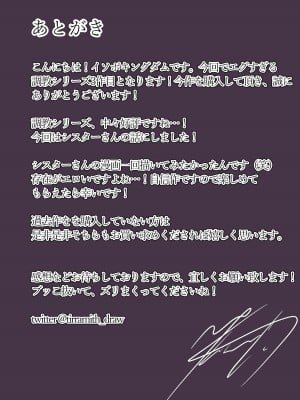 あとがき
こんにちは！イソポキングダムです。今回でエグすぎる
調教シリーズ3作目となります！今作を購入して頂き、誠に
ありがとうございます！
調教シリーズ、中々好評ですね…！
今回はシスターさんの話にしました！
シスターさんの漫画一回描いてみたかったんです（笑）
存在がエロいですよね…！自信作ですので楽しめて
もらえたら幸いです！
過去作をを購入していない方は
是非是非そちらもお買い求めくだされば嬉しく思います。
感想などお待ちしておりますので、宜しくお願い致します！
ブッこ抜いて、ズリまくってくださいね！
twitter@tirramith_draw